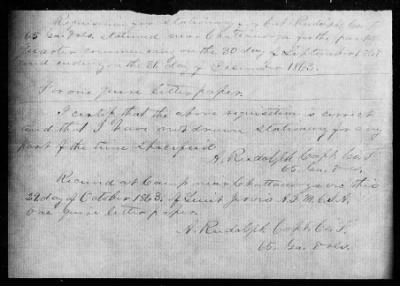 Requisition for Stationary for Capt. Rudolph Co. F
65 Ga. Vols. stationed near Chattanooga for the part
Quarter commencing on the 30 day of September 1863
and ending on the 31 day of December 1863.
For one quire letter paper
I certify that the above requisition is correct
and that I have not drawn Stationary for any
part of the time Specified
A. Rudolph Capt. Co. F
65 Ga. Vols.
Received at Camp near Chattanooga this
22 day of October 1863 of Lieut A.Q.M.C.S.A.
one quire letter paper
A. Rudolph Capt. Co. F.
65. Ga. Vols.